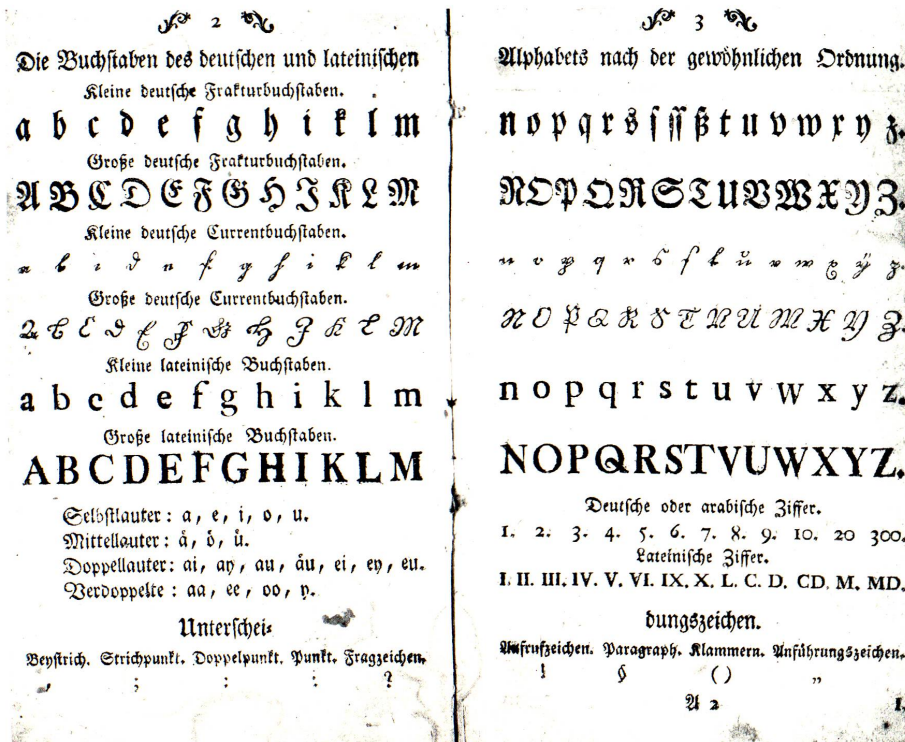 2
Die Buchſtaben des deutſchen und lateiniſchen
Kleine deutſche Frakturbuchſtaben.
a b c d e f g h i k l m
Große deutſche Frakturbuchſtaben.
A B C D E F G H J K L M
Kleine deutſche Currentbuchſtaben.
a b c d e f g h i k l m
Große deutſche Currentbuchſtaben.
A B C D E F G H J K L M
Kleine lateiniſche Buchſtaben.
a b c d e f g h i k l m
Große lateiniſche Buchſtaben.
A B C D E F G H I K L M
Selbſtlauter: a, e, i, o, u.
Mittellauter: ä, ö, ü.
Doppellauter: ai, ay, au, äu, ei, ey, eu.
Verdoppelte: aa, ee, oo, y.
Unterſchei-
Beyſtrich. Strichpunkt. Doppelpunkt. Punkt. Fragzeichen.
, ; : . ?
3
Alphabets nach der gewöhnlichen Ordnung.
n o p q r s ſ ſſ ß t u v w x y z.
N O P Q R S T U V W X Y Z.
n o p q r s ſ t u v w x y z.
N O P Q R S T V U W X Y Z.
n o p q r s t u v w x y z.
N O P Q R S T V U W X Y Z.
Deutſche oder arabiſche Ziffer.
1. 2. 3. 4. 5. 6. 7. 8. 9. 10. 20 300.
Lateiniſche Ziffer.
I. II. III. IV. V. VI. IX. X. L. C. D. CD. M. MD.
dungszeichen.
Aufrufzeichen. Paragraph. Klammern. Anführungszeichen.
! § ( ) „
A 2
1.